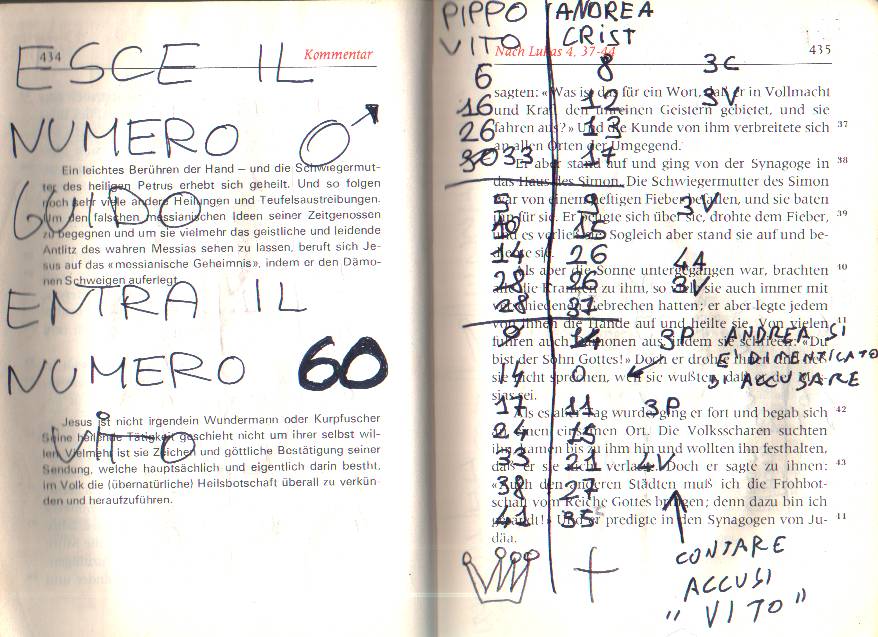 434 Kommentar
ESCE IL
NUMERO ♂
Ein leichtes Berühren der Hand – und die Schwiegermut-
ter des heiligen Petrus erhebt sich geheilt. Und so folgen
noch sehr viele andere Heilungen und Teufelsaustreibungen.
Um den falschen messianischen Ideen seiner Zeitgenossen
zu begegnen und um sie vielmehr das geistliche und leidende
Antlitz des wahren Messias sehen zu lassen, beruft sich Je-
sus auf das «messianische Geheimnis», indem er den Dämo-
nen Schweigen auferlegt.
GUIDO
ENTRA IL
NUMERO 60
Jesus ist nicht irgendein Wundermann oder Kurpfuscher
Seine heilende Tätigkeit geschieht nicht um ihrer selbst wil-
len. Vielmehr ist sie Zeichen und göttliche Bestätigung seiner
Sendung, welche hauptsächlich und eigentlich darin besteht,
im Volk die (übernatürliche) Heilsbotschaft überall zu verkün-
den und heraufzuführen.
VITO
PIPPO ANDREA
VITO CRIST
Nach Lukas 4, 37-44 435
6 8 3C
16 12 3V
26 13
33 17
5 9 3V
10 15
14 26 4A
28 26 3V
28 31
9 14 3P ANDREA SI
E' DIMENTICATO
14 0 D'ACCUSARE
17 11 3P
24 15
33 21 4V
38 27
41 35
+ CONTARE
ACCUSI
"VITO"
sagten: «Was ist das für ein Wort, daß er in Vollmacht
und Kraft den unreinen Geistern gebietet, und sie
fahren aus?» Und die Kunde von ihm verbreitete sich 37
an allen Orten der Umgegend.
Er aber stand auf und ging von der Synagoge in 38
das Haus des Simon. Die Schwiegermutter des Simon
war von einem heftigen Fieber befallen, und sie baten
ihn für sie. Er beugte sich über sie, drohte dem Fieber, 39
und es verließ sie. Sogleich aber stand sie auf und be-
diente sie.
Als aber die Sonne untergegangen war, brachten 40
alle die Kranken zu ihm, so viele sie auch immer mit
verschiedenen Gebrechen hatten; er aber legte jedem
von ihnen die Hände auf und heilte sie. Von vielen 41
fuhren auch Dämonen aus, indem sie schrieen: «Du
bist der Sohn Gottes!» Doch er drohte
sie nicht sprechen, weil sie wußten, daß er der Mes-
sias sei.
Als es aber Tag wurde, ging er fort und begab sich 42
an einen einsamen Ort. Die Volksscharen suchten
ihn, kamen bis zu ihm hin und wollten ihn festhalten,
daß er sie nicht verlasse. Doch er sagte zu ihnen: 43
«Auch den anderen Städten muß ich die Frohbot-
schaft vom Reiche Gottes bringen; denn dazu bin ich
gesandt!» Und er predigte in den Synagogen von Ju- 44
däa.